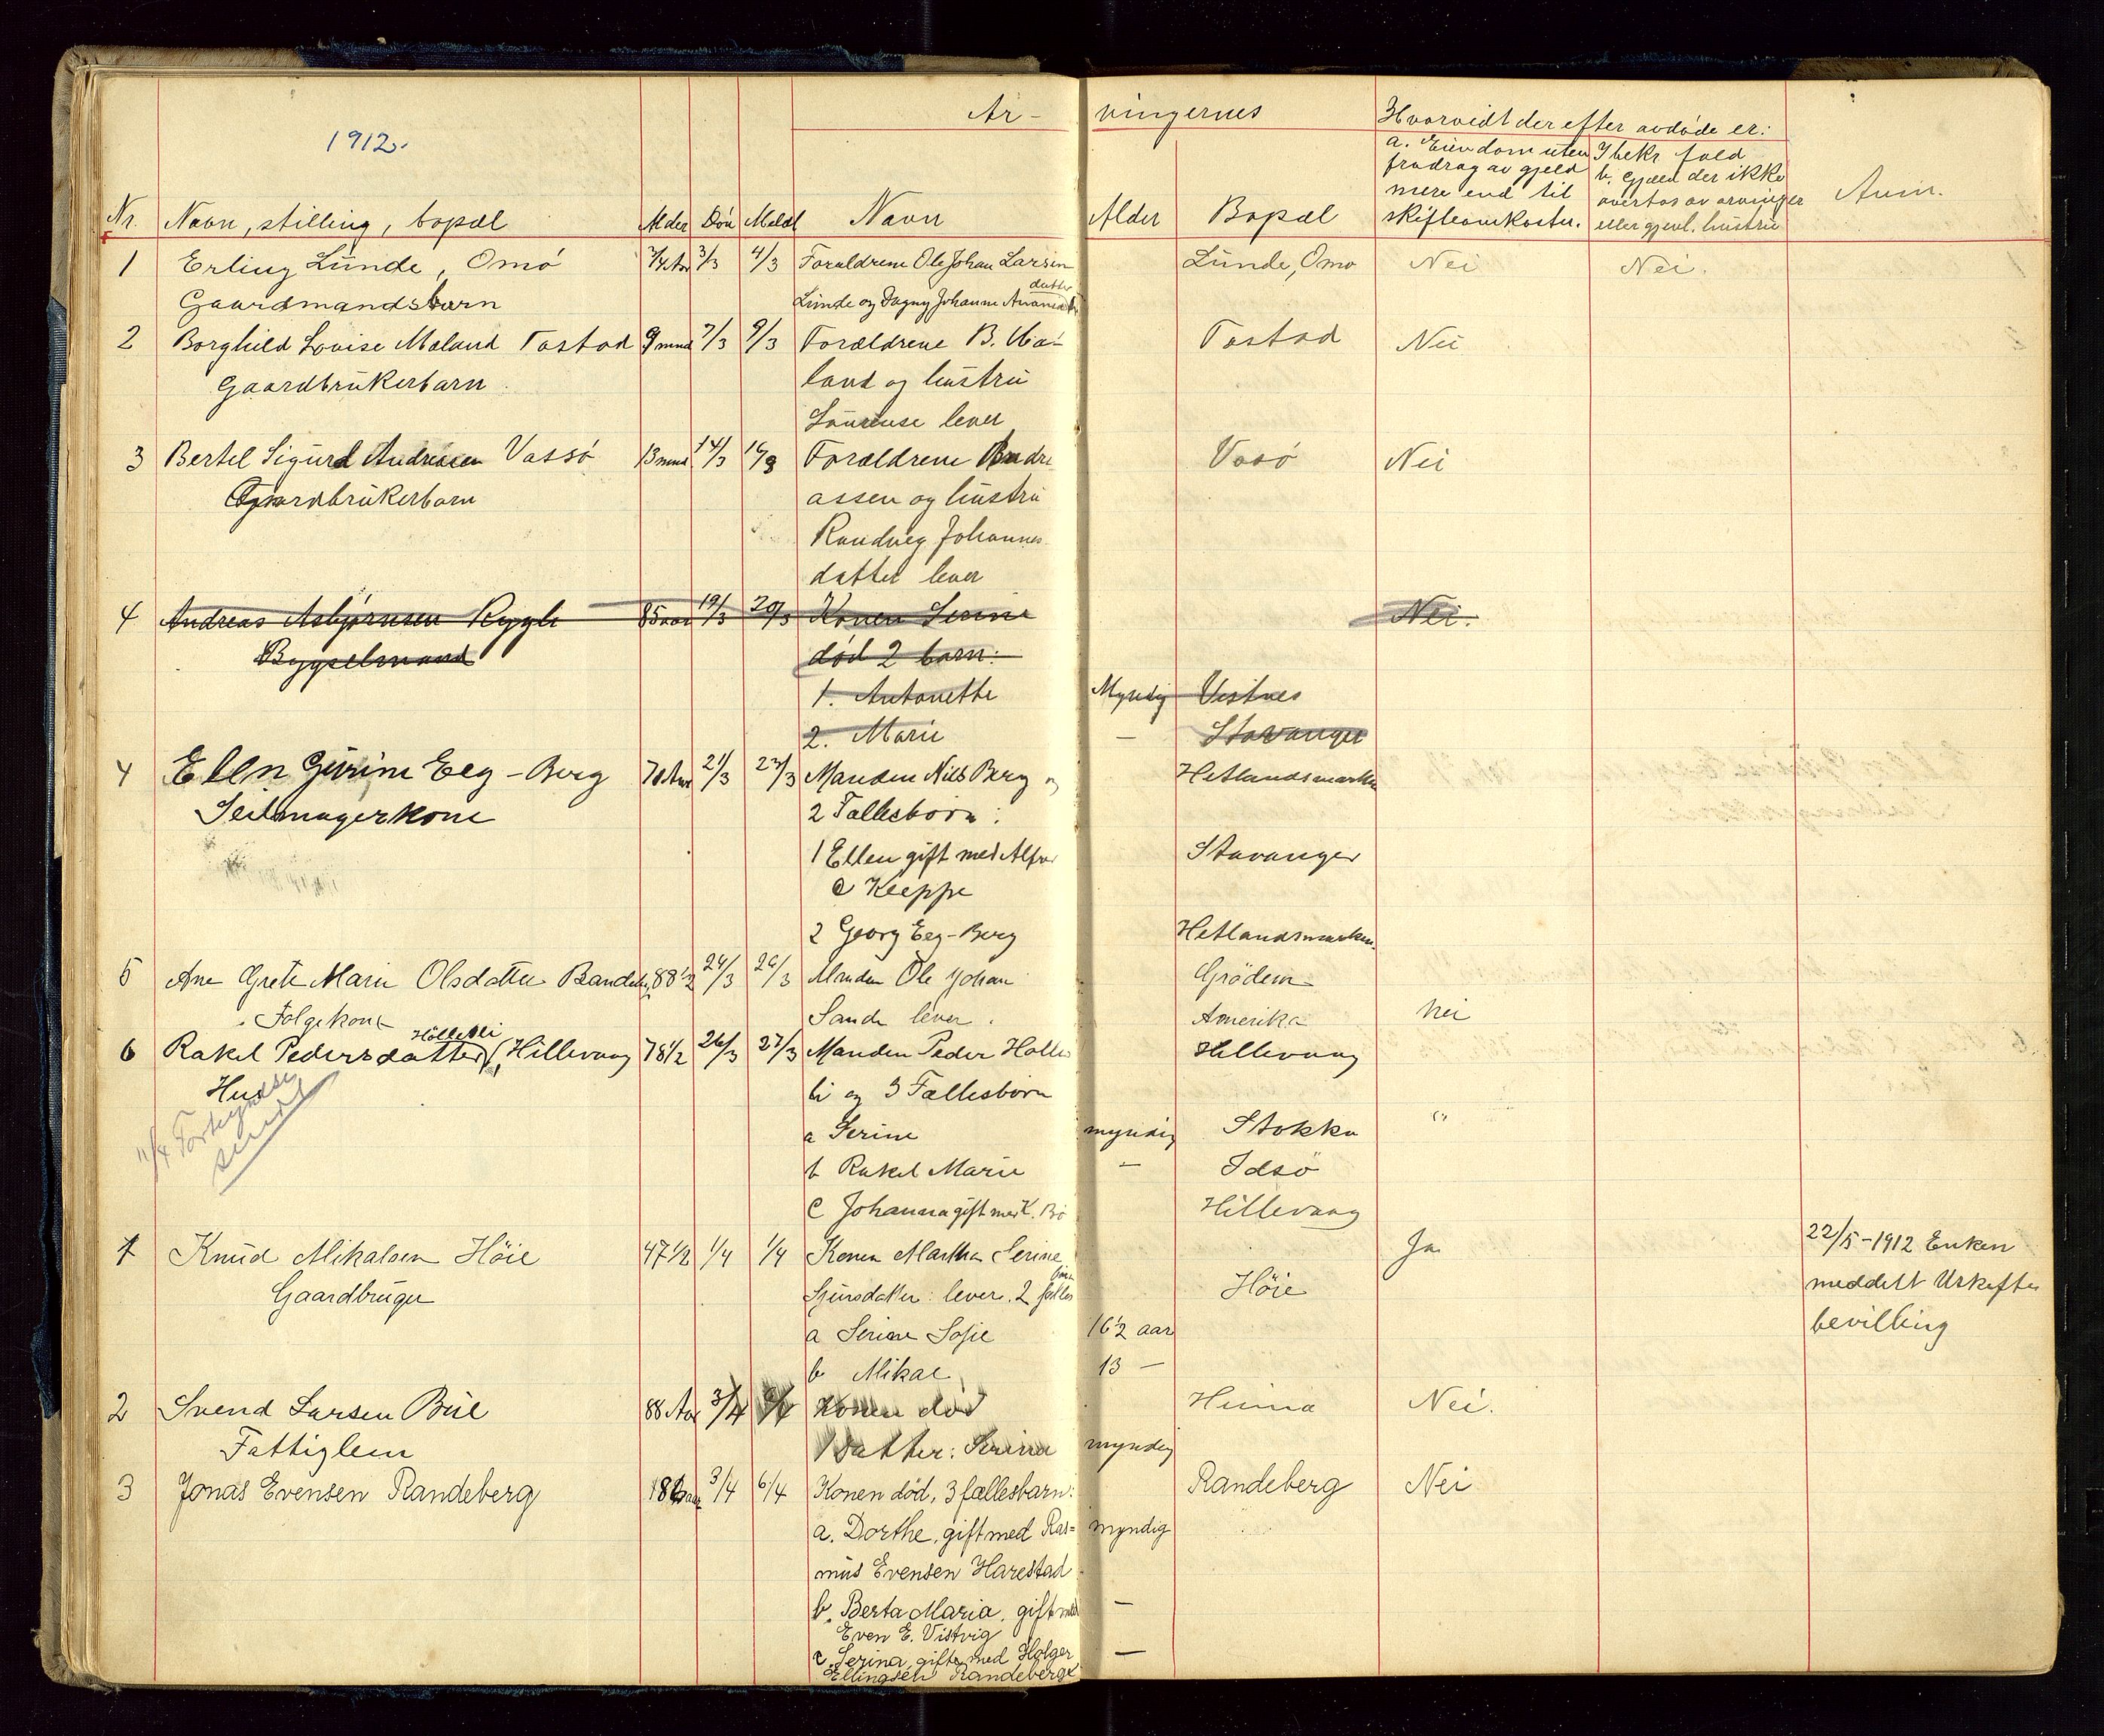 1912.
Ar- vingernes
Hvorvidt der efter avdøde er:
a. Eiendom uten fradrag av gjeld mere end til skifteomkostn.
I bekr fald b. Gjæld der ikke overtas av arvinger eller gjenl. hustru
Anm.
Nr. Navn, stilling, bopæl Alder Död Meldt Navn Alder Bopæl
1 Erling Lunde, Omö 3/4 Aar 3/3 4/3 Forældrene Ole Johan Larsen Lunde, Omo Nei Nei.
Gaardmandsbarn Lunde og Dagny Johanne datter
2 Borghild Lovise Maland Tastad 9 mnd 7/3 9/3 Forældrene B. Ma- Tastad Nei
Gaardbrukerbarn land og hustru
Laurense lever
3 Bertel Sigurd Andreasen Vassö 13 mnd 14/3 16/3 Forældrene Andre Vasö Nei
Gaardbrukerbarn assen og hustru
Randveig Johannes
datter lever
4 Andreas Asbjørnsen Rygh 85 aar 19/3 20/3 Konen Serine Nei.
Bygselmand død 2 barn:
1. Antonette Myndig Vestnes
2. Marie — Stavanger
4 Ellen Gurine Eeg-Berg 70 Aar 21/3 23/3 Manden Nils Berg og Hetlandsmarken
Seilmagerkone 2 Fællesbörn:
1 Ellen gift med Alfred Stavanger
C Kleppe
2 Georg Eeg-Berg Hetlandsmarken.
5 Ane Grete Marie Olsdatter 88 1/2 24/3 26/3 Manden Ole Johan Grödem
Folgekone Sande lever. Amerika Nei
6 Rakel Pedersdatter Hölleli, Hillevaag 78 1/2 26/3 27/3 Manden Peder Hølle Hillevaag
Hus li og 3 Fællesbörn
11/4 sendt
a Serine myndig Stokka "
b Rakel Marie — Idsö
c Johanna gift med K. Bö Hillevaag
1 Knud Mikalsen Höie 47 1/2 1/4 1/4 Konen Martha Serine Ja 22/5-1912 Enken
Gaardbruger Sjursdatter: lever. 2 fælles börn Höie meddelt Uskifte
a Serine Sofie 16 1/2 aar bevilling
b Mikal 13 —
2 Svend Larsen Bue 88 Aar 3/4 Konen død Hinna Nei.
Fattiglem 1 Datter: Serina myndig
3 Jonas Evensen Randeberg 3/4 6/4 Konen död, 3 fællesbarn: Randeberg Nei
a. Dorthe, gift med Ras= myndig
mus Evensen Harestad
b. Berta Maria, gift med —
Even E. Vistvig
c. Serina, gift med Holger —
Ellingsen Randeberg